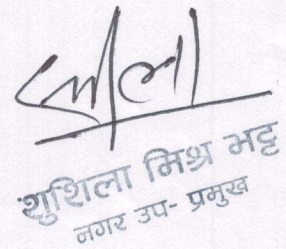 शुशिला मिश्र भट्ट
नगर उप- प्रमुख